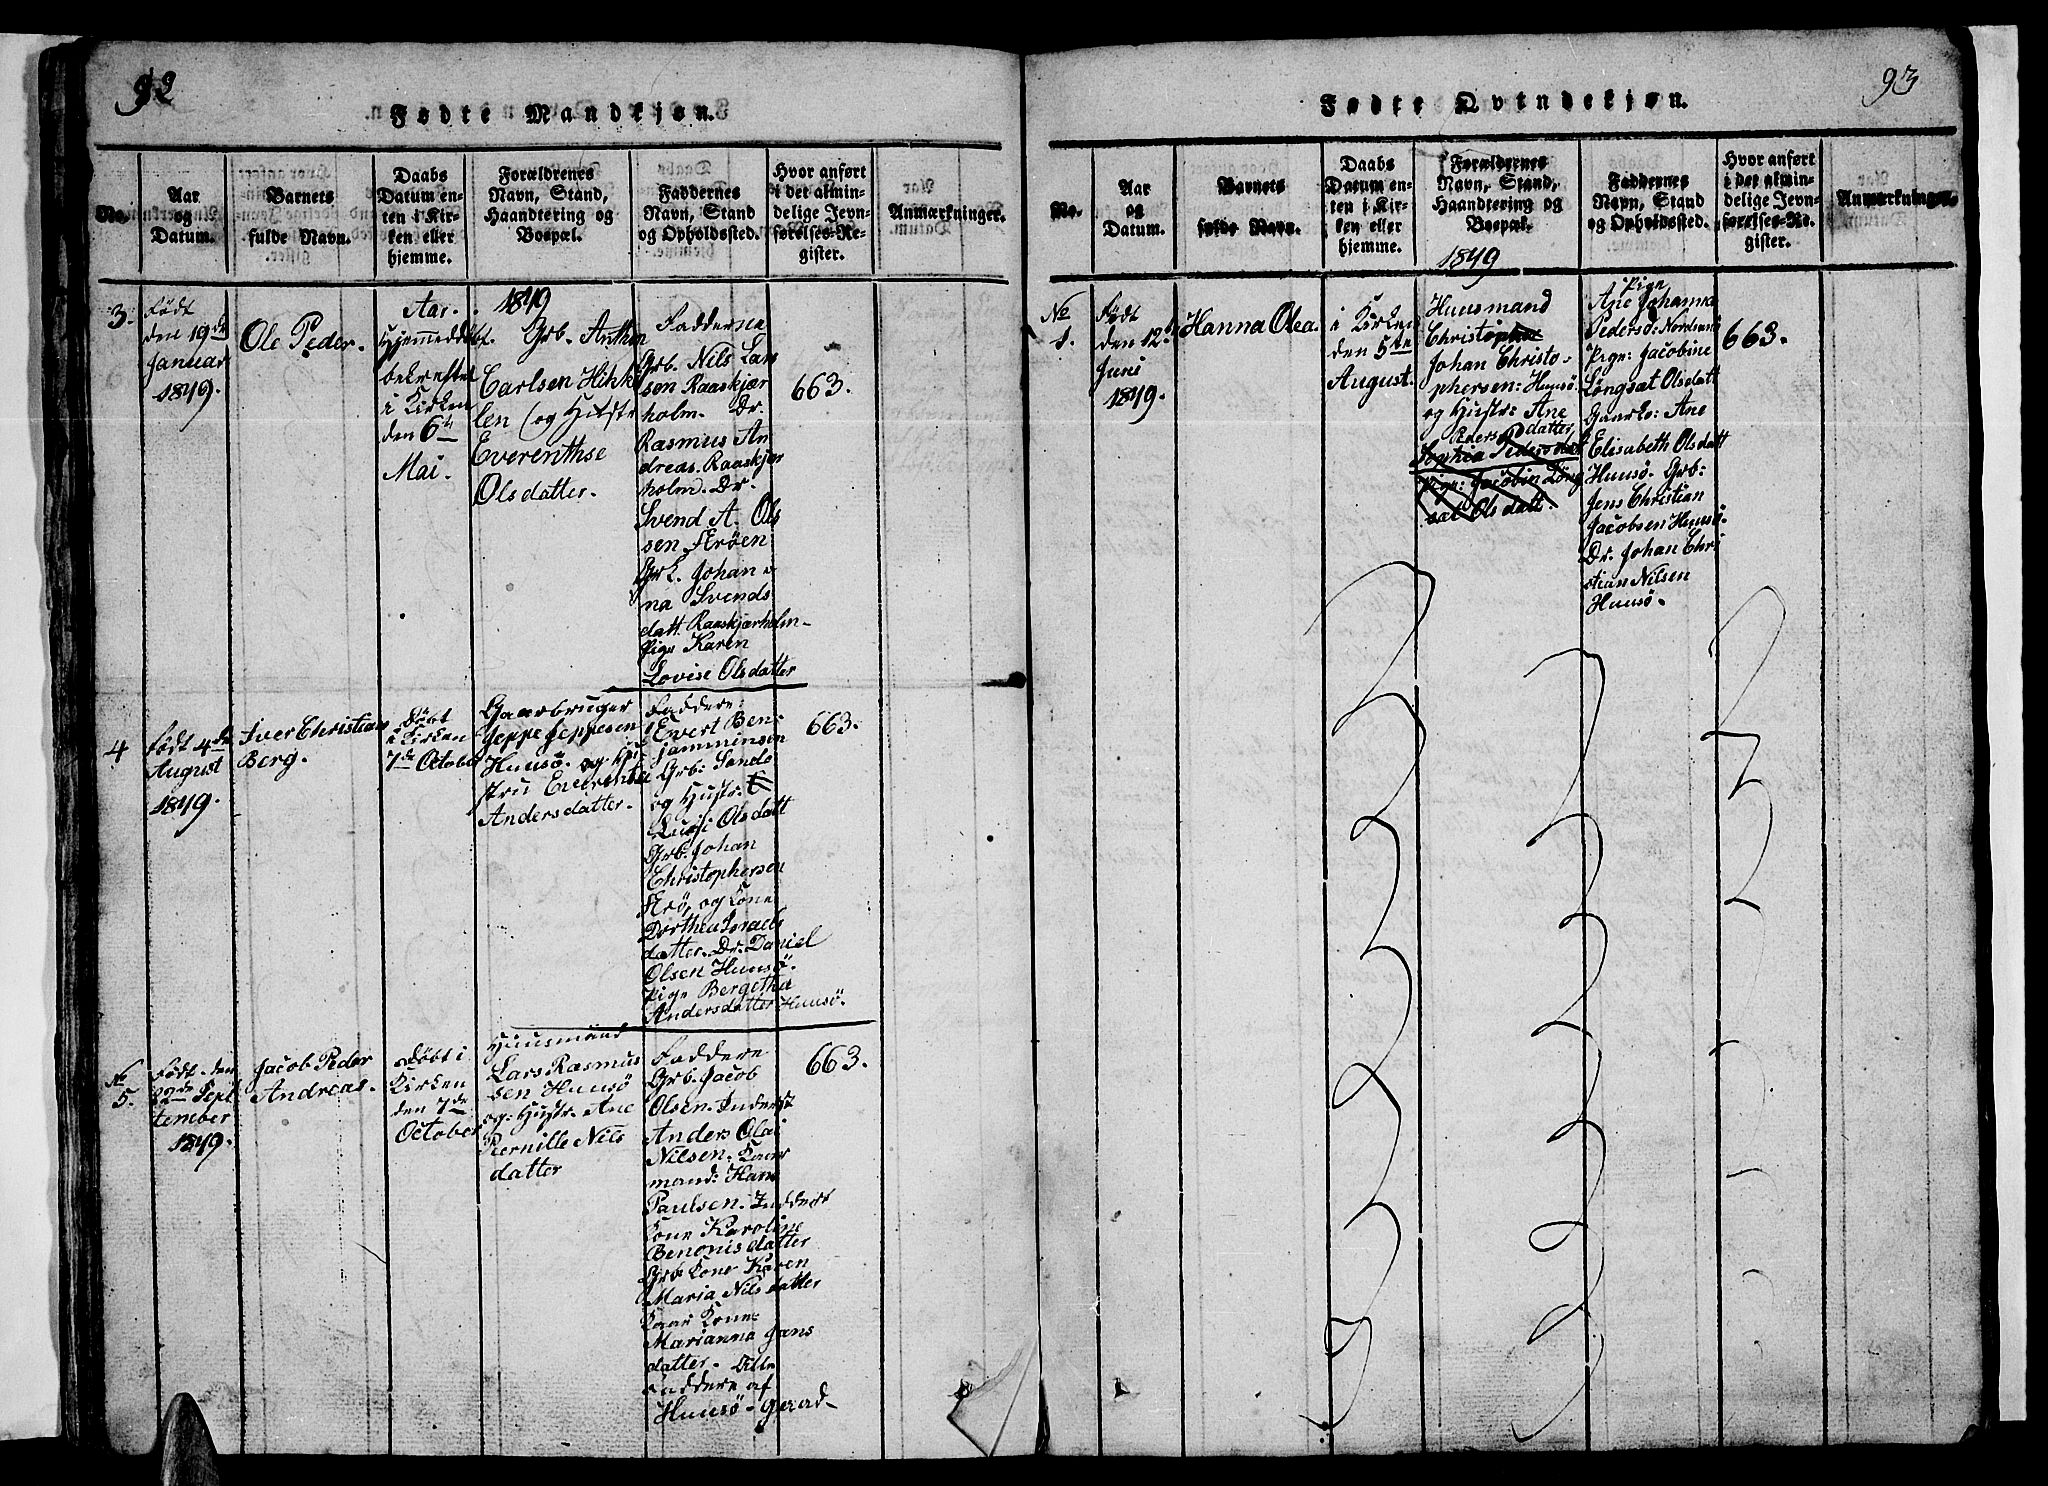 92
Fødte Mandkjøn.
No.
Aar
og
Datum.
Barnets
fulde Navn.
Daabs
Datum en-
ten i Kir-
ken eller
hjemme.
Forældrenes
Navn, Stand,
Haandtering og
Bopæl.
Faddernes
Navn, Stand
og Opholdssted.
Hvor anført
i det almin-
delige Jevn-
førelses-Re-
gister.
Anmærkninger.
Aar. 1849
3.
Født
den 19de
Januar
1849.
Ole Peder.
Hjemmedøbt.
bekræftet
i Kirken
den 6te
Mai.
Grb. Anthon
Carlsen
len (og Hustr
Everenthse
Olsdatter.
Faddern
Grb. Nils Lar
sen Raaskjær
holm. Dr.
Rasmus An
dreas. Raaskjær
holm. Dr.
Svend A. Ols
sen Ærøen
Grk. Johan
na Svends
datt. Raaskjærholm-
Pige Karen
Lovise Olsdatter
663.
4
Født 4de
August
1849.
Iver Christian
Berg.
Døbt
i Kirken
7de October
Gaarbruger
Jeppe Jeppesen
Huusö. og Hu
stru Everenta
Andersdatter.
Faddere:
Evert Ben-
jamminsen
Grb: Sandö
og Hustr.
Lusi Olsdatt
Grb: Johan
Christophersen
Ærö, og Kone
Dorthea Israels
datter. Dr: Daniel
Olsen Huusö.
Pige Bergetha
Andersdatter Huusö.
663.
No
5.
Født. den
22de Sept
tember
1849.
Jacob Peder
Andreas.
Døbt i
Kirken
den 7de
October
Huusmand
Lars Rasmus
sen Huusö
og: Hustr. Ane
Piernille Nils
datter
Faddere
Grb. Jacob
Olsen. Inderst
Anders Olai
Nilsen. Kaar
mand: Hans
Paulsen. Inderst
Kone Karoline
Benonisdatter
Grb. Kone Karen
Maria Nilsdatter
Kaar Kone
Marianna Jans
datter. Alle
Faddere af
Huusö-gerad-
663.
93
Fødte Qvindekjøn.
No.
Aar
og
Datum.
Barnets
fulde Navn.
Daabs
Datum en-
ten i Kir-
ken eller
hjemme.
Forældrenes
Navn, Stand,
Haandtering og
Bopæl.
Faddernes
Navn, Stand
og Opholdssted.
Hvor anført
i det almin-
delige Jevn-
førelses-Re-
gister.
Anmærkninger.
1849
No
1.
Født
den 12te
Juni
1849.
Hanna Olea.
i Kirken
den 5te
August.
Huusmand
Christopher
Johan Christo-
phersen: Huusö.
og Hustr: Ane
Pedersdatter,
Sophia Pedersdatt
Pige: Jacobin Løng
sæt Olsdatt.
Pige
Ane Johanna
Pedersd: Nordsund
Pige: Jacobine
Løngsæt Olsdatt
Gaarko: Ane
Elisabeth Olsdatt
Huusö. Grb:
Jens Christian
Jacobsen Huusö
Dr. Johan Chri
stian Nilsen
Huusö.
663.